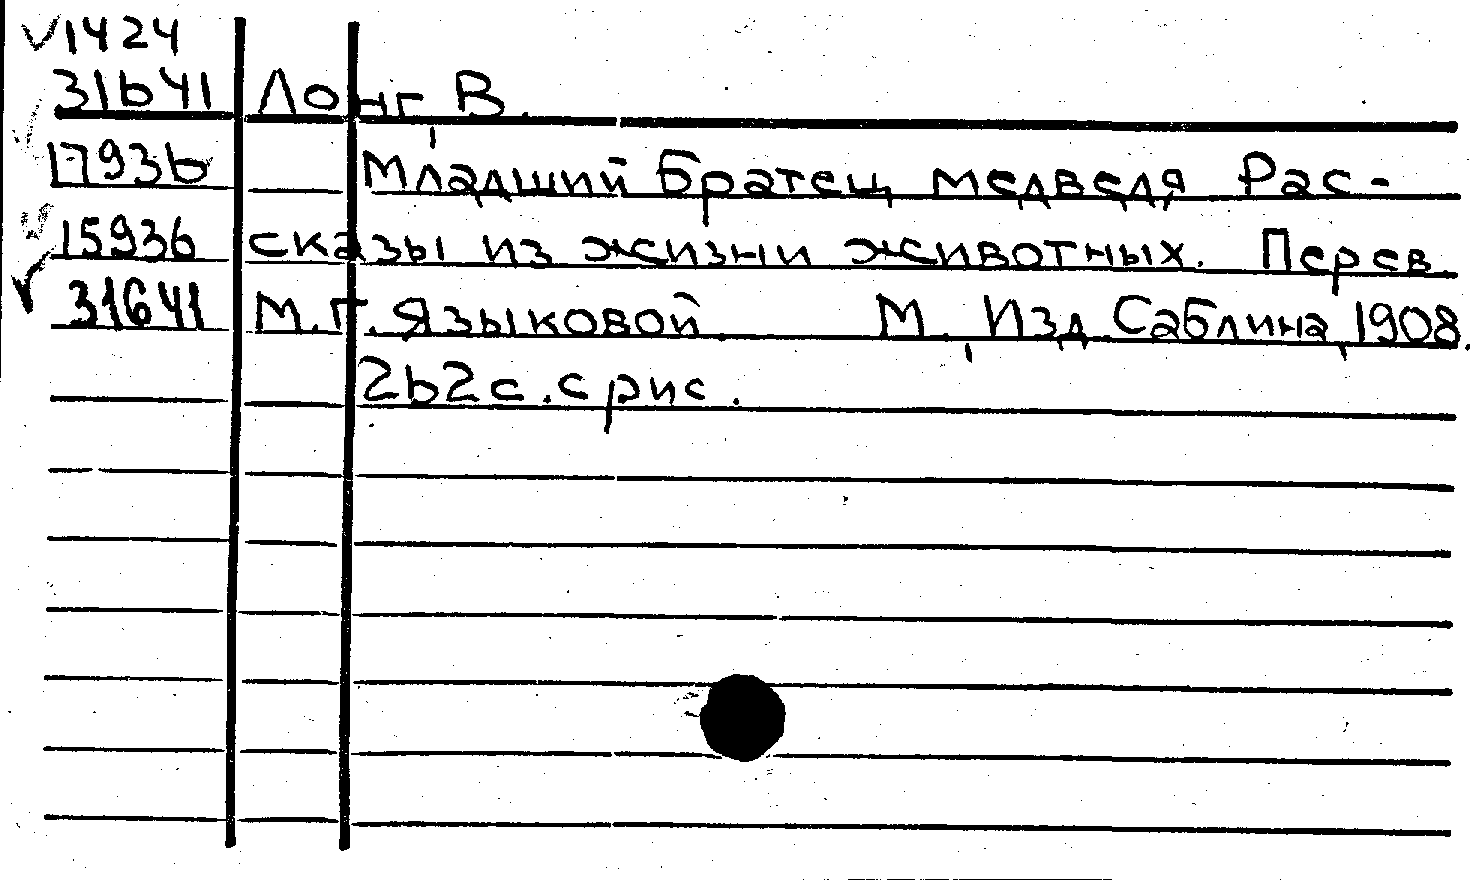 √1424
31641 Лонг, В.
17936 Младший братец медведя Рас-
15936 сказы из жизни животных. Перев.
√ 31641 М.Г. Языковой М., Изд. Саблина, 1908.
262 с. с рис.